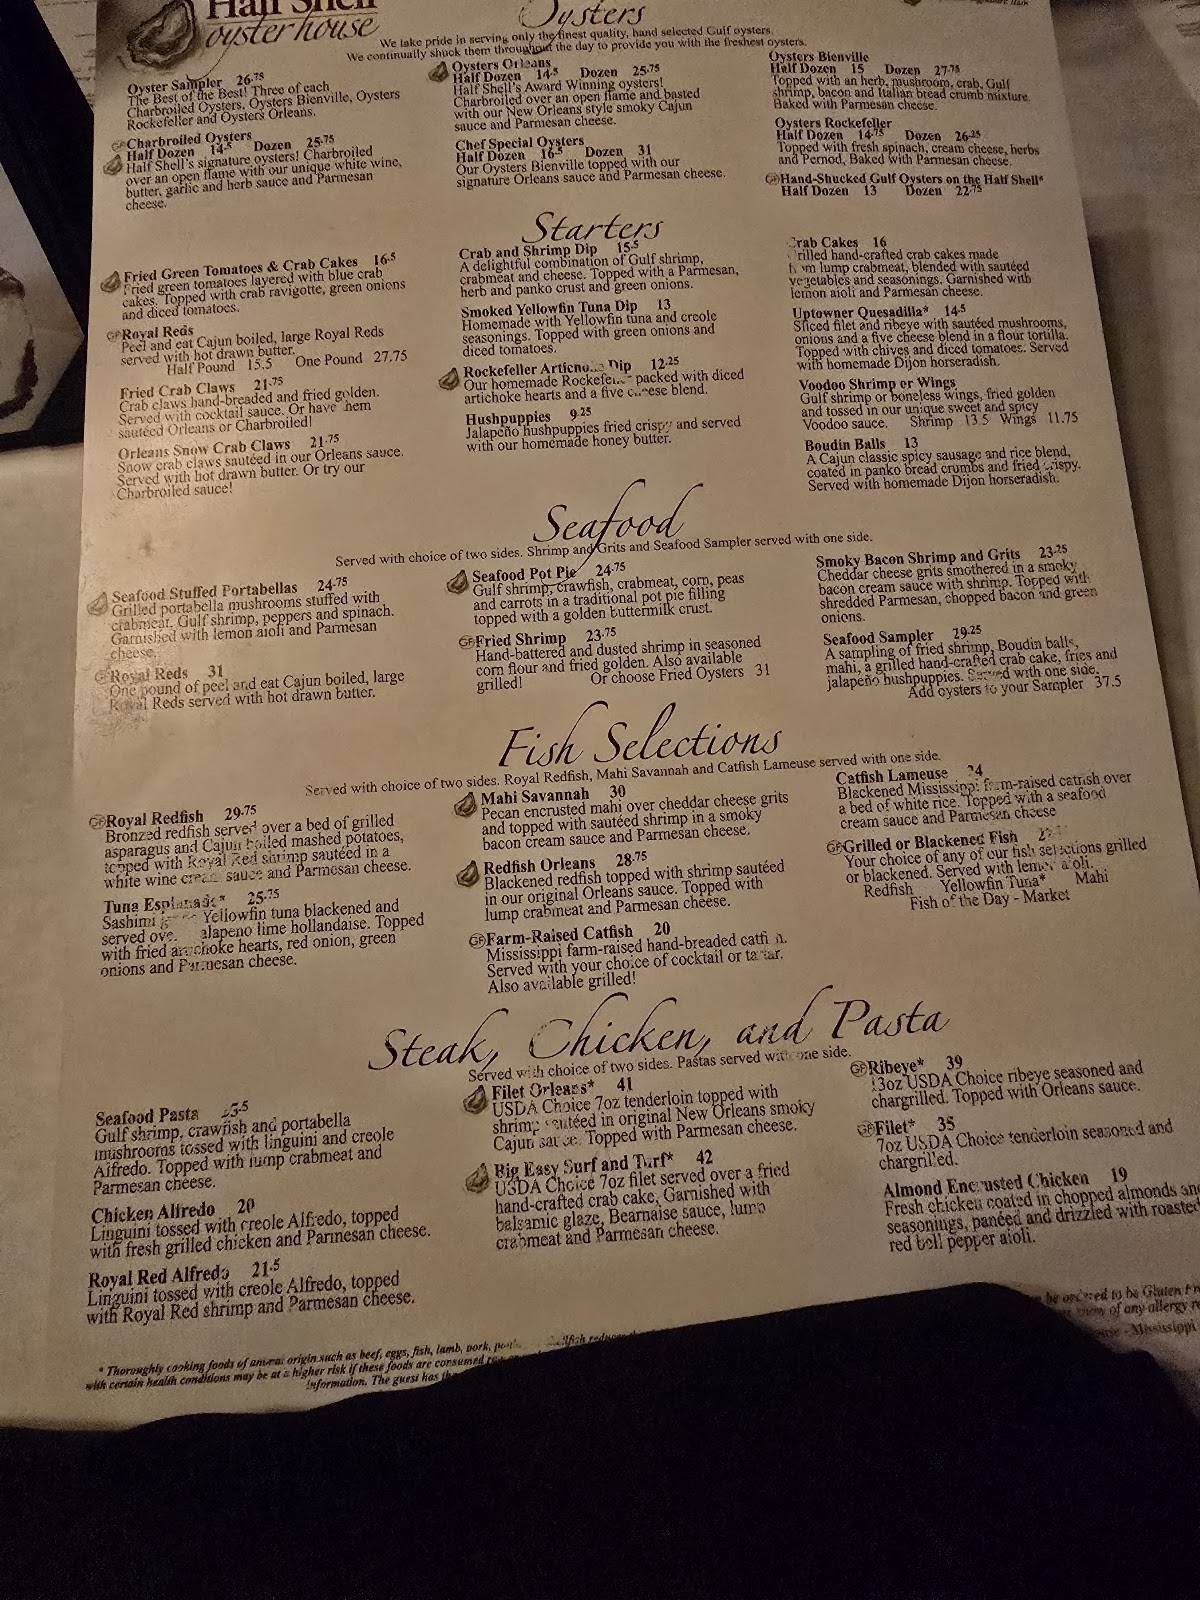 Half Shell
oyster house
Oysters
We take pride in serving only the finest quality, hand selected Gulf oysters.
We continually shuck them throughout the day to provide you with the freshest oysters.
Oyster Sampler 26.75
The Best of the Best! Three of each
Charbroiled Oysters, Oysters Bienville, Oysters
Rockefeller and Oysters Orleans.
GF Charbroiled Oysters
Half Dozen 14.5 Dozen 25.75
Half Shell's signature oysters! Charbroiled
over an open flame with our unique white wine,
butter, garlic and herb sauce and Parmesan
cheese.
Oysters Orleans
Half Dozen 14.5 Dozen 25.75
Half Shell's Award Winning oysters!
Charbroiled over an open flame and basted
with our New Orleans style smoky Cajun
sauce and Parmesan cheese.
Chef Special Oysters
Half Dozen 16.5 Dozen 31
Our Oysters Bienville topped with our
signature Orleans sauce and Parmesan cheese.
Oysters Bienville
Half Dozen 15 Dozen 27.75
Topped with an herb, mushroom, crab, Gulf
shrimp, bacon and Italian bread crumb mixture.
Baked with Parmesan cheese.
Oysters Rockefeller
Half Dozen 14.75 Dozen 26.25
Topped with fresh spinach, cream cheese, herbs
and Pernod, Baked with Parmesan cheese.
GF Hand-Shucked Gulf Oysters on the Half Shell*
Half Dozen 13 Dozen 22.75
Starters
Fried Green Tomatoes & Crab Cakes 16.5
Fried green tomatoes layered with blue crab
cakes. Topped with crab ravigotte, green onions
and diced tomatoes.
GF Royal Reds
Peel and eat Cajun boiled, large Royal Reds
served with hot drawn butter.
Half Pound 15.5 One Pound 27.75
Fried Crab Claws 21.75
Crab claws hand-breaded and fried golden.
Served with cocktail sauce. Or have them
sautéed Orleans or Charbroiled!
Orleans Snow Crab Claws 21.75
Snow crab claws sautéed in our Orleans sauce.
Served with hot drawn butter. Or try our
Charbroiled sauce!
Crab and Shrimp Dip 15.5
A delightful combination of Gulf shrimp,
crabmeat and cheese. Topped with a Parmesan,
herb and panko crust and green onions.
Smoked Yellowfin Tuna Dip 13
Homemade with Yellowfin tuna and creole
seasonings. Topped with green onions and
diced tomatoes.
Rockefeller Artichoke Dip 12.25
Our homemade Rockefeller packed with diced
artichoke hearts and a five cheese blend.
Hushpuppies 9.25
Jalapeño hushpuppies fried crispy and served
with our homemade honey butter.
Crab Cakes 16
Grilled hand-crafted crab cakes made
from lump crabmeat, blended with sautéed
vegetables and seasonings. Garnished with
lemon aioli and Parmesan cheese.
Uptowner Quesadilla* 14.5
Sliced filet and ribeye with sautéed mushrooms,
onions and a five cheese blend in a flour tortilla.
Topped with chives and diced tomatoes. Served
with homemade Dijon horseradish.
Voodoo Shrimp or Wings
Gulf shrimp or boneless wings, fried golden
and tossed in our unique sweet and spicy
Voodoo sauce. Shrimp 13.5 Wings 11.75
Boudin Balls 13
A Cajun classic spicy sausage and rice blend,
coated in panko bread crumbs and fried crispy.
Served with homemade Dijon horseradish.
Seafood
Served with choice of two sides. Shrimp and Grits and Seafood Sampler served with one side.
Seafood Stuffed Portabellas 24.75
Grilled portabella mushrooms stuffed with
crabmeat, Gulf shrimp, peppers and spinach.
Garnished with lemon aioli and Parmesan
cheese.
GF Royal Reds 31
One pound of peel and eat Cajun boiled, large
Royal Reds served with hot drawn butter.
Seafood Pot Pie 24.75
Gulf shrimp, crawfish, crabmeat, corn, peas
and carrots in a traditional pot pie filling
topped with a golden buttermilk crust.
GF Fried Shrimp 23.75
Hand-battered and dusted shrimp in seasoned
corn flour and fried golden. Also available
grilled! Or choose Fried Oysters 31
Smoky Bacon Shrimp and Grits 23.25
Cheddar cheese grits smothered in a smoky
bacon cream sauce with shrimp. Topped with
shredded Parmesan, chopped bacon and green
onions.
Seafood Sampler 29.25
A sampling of fried shrimp, Boudin balls,
mahi, a grilled hand-crafted crab cake, fries and
jalapeño hushpuppies. Served with one side.
Add oysters to your Sampler 37.5
Fish Selections
Served with choice of two sides. Royal Redfish, Mahi Savannah and Catfish Lameuse served with one side.
GF Royal Redfish 29.75
Bronzed redfish served over a bed of grilled
asparagus and Cajun boiled mashed potatoes,
topped with Royal Red shrimp sautéed in a
white wine cream sauce and Parmesan cheese.
Tuna Esplanade* 25.75
Sashimi Yellowfin tuna blackened and
served over jalapeno lime hollandaise. Topped
with fried artichoke hearts, red onion, green
onions and Parmesan cheese.
Mahi Savannah 30
Pecan encrusted mahi over cheddar cheese grits
and topped with sautéed shrimp in a smoky
bacon cream sauce and Parmesan cheese.
Redfish Orleans 28.75
Blackened redfish topped with shrimp sautéed
in our original Orleans sauce. Topped with
lump crabmeat and Parmesan cheese.
GF Farm-Raised Catfish 20
Mississippi farm-raised hand-breaded catfish.
Served with your choice of cocktail or tartar.
Also available grilled!
Catfish Lameuse 24
Blackened Mississippi farm-raised catfish over
a bed of white rice. Topped with a seafood
cream sauce and Parmesan cheese
GF Grilled or Blackened Fish
Your choice of any of our fish selections grilled
or blackened. Served with lemon aioli.
Redfish Yellowfin Tuna* Mahi
Fish of the Day - Market
Steak, Chicken, and Pasta
Served with choice of two sides. Pastas served with one side.
Seafood Pasta
Gulf shrimp, crawfish and portabella
mushrooms tossed with linguini and creole
Alfredo. Topped with lump crabmeat and
Parmesan cheese.
Chicken Alfredo 20
Linguini tossed with creole Alfredo, topped
with fresh grilled chicken and Parmesan cheese.
Royal Red Alfredo 21.5
Linguini tossed with creole Alfredo, topped
with Royal Red shrimp and Parmesan cheese.
Filet Orleans* 41
USDA Choice 7oz tenderloin topped with
shrimp sautéed in original New Orleans smoky
Cajun sauce. Topped with Parmesan cheese.
Big Easy Surf and Turf* 42
USDA Choice 7oz filet served over a fried
hand-crafted crab cake, Garnished with
balsamic glaze, Bearnaise sauce, lump
crabmeat and Parmesan cheese.
GF Ribeye* 39
13oz USDA Choice ribeye seasoned and
chargrilled. Topped with Orleans sauce.
GF Filet* 35
7oz USDA Choice tenderloin seasoned and
chargrilled.
Almond Encrusted Chicken 19
Fresh chicken coated in chopped almonds and
seasonings, panéed and drizzled with roasted
red bell pepper aioli.
be ordered to be Gluten Fr
of any allergy re
- Mississippi
* Thoroughly cooking foods of animal origin such as beef, eggs, fish, lamb, pork,
with certain health conditions may be at a higher risk if these foods are consumed
information. The guest has